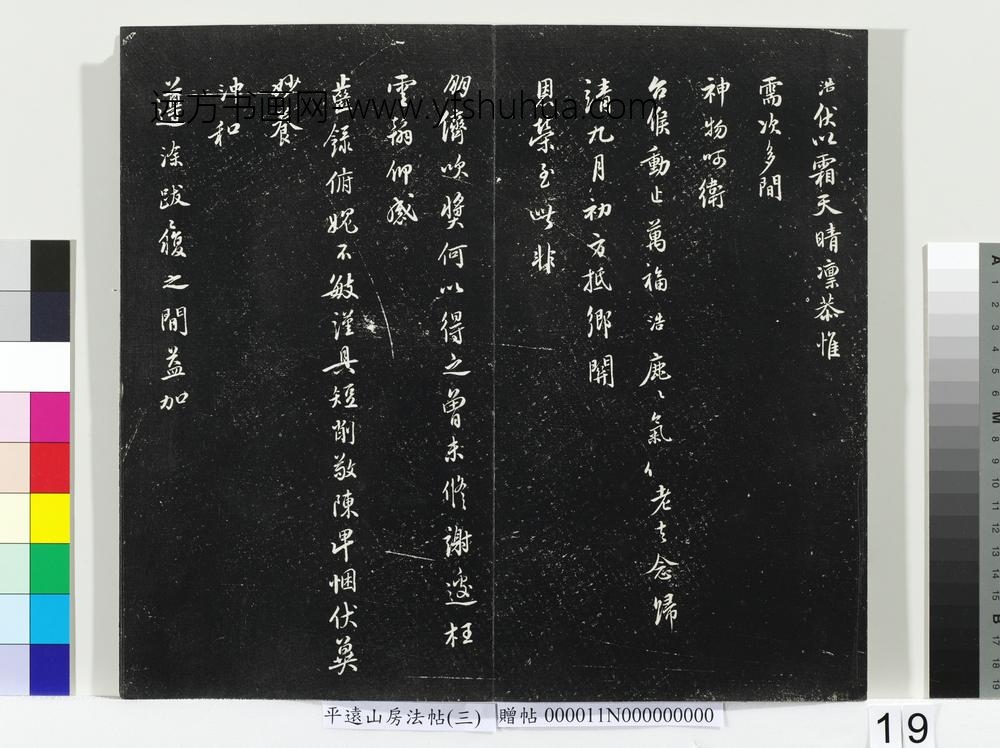 浩伏以霜天晴凛恭惟
需次多間
神物呵衛
台候動止萬福浩鹿氣老去念歸
請九月初方抵鄉關
因榮至此非
朋儕吹奬何以得之曾未脩謝遽枉
雲翰仰感
盛錄俯媿不敏謹具短削敬陳卑悃伏冀
養
沖和
遵塗跋履之間益加
远方书画网 www.yfshuhua.com
平遠山房法帖(三) 贈帖 000011N000000000
19
A
1
2
3
4
5
6
M
8
9
10
11
12
13
14
15
B
17
18
19